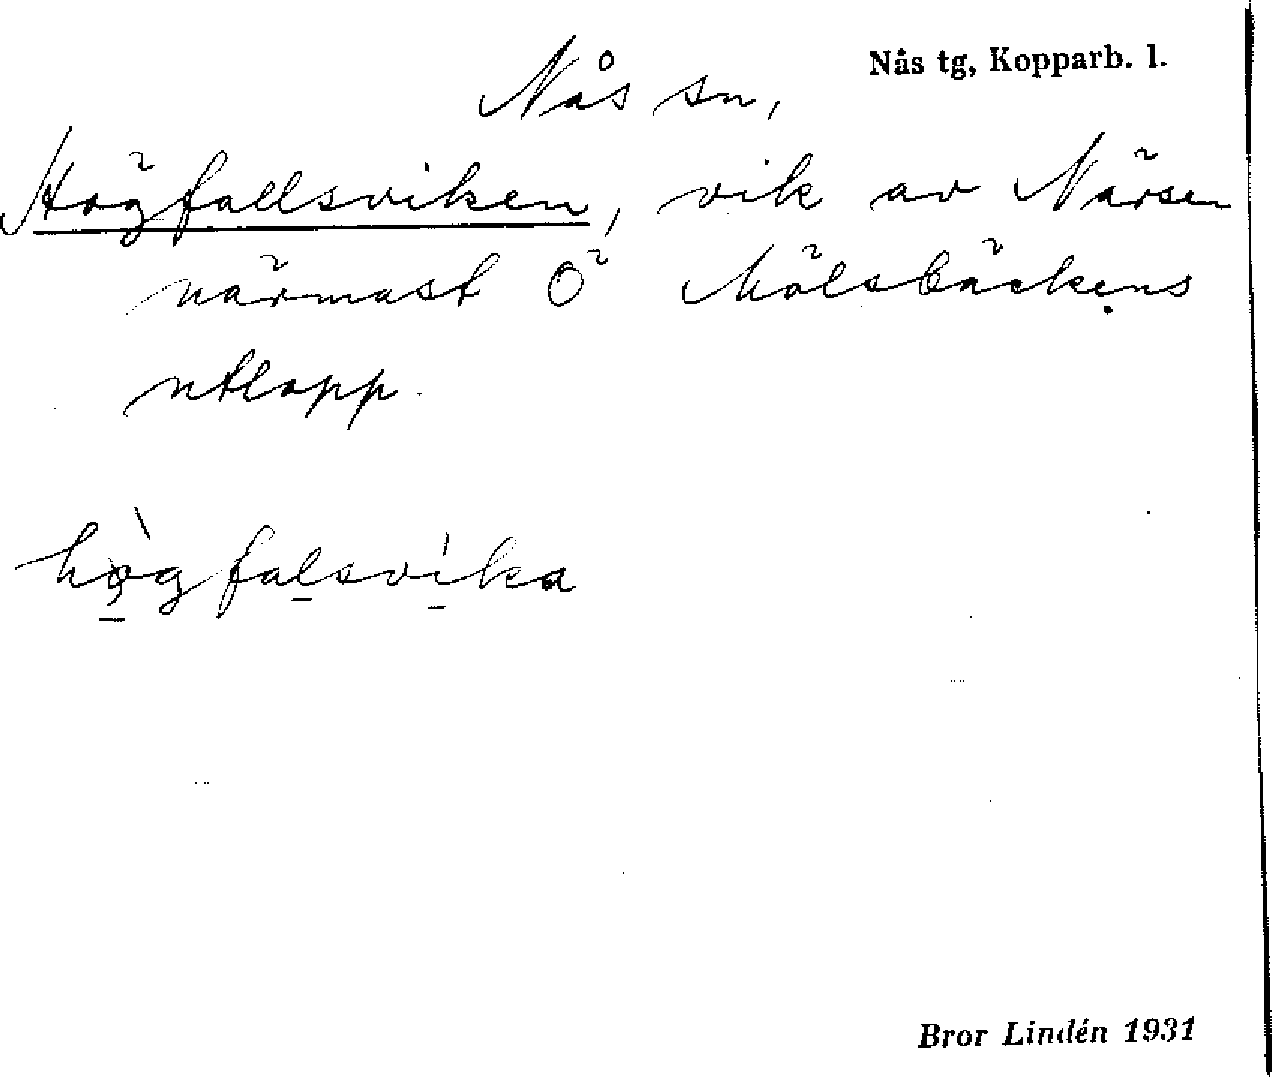 Nås tg, Kopparb. l.
Nås sn,
Högfallsviken, vik av Närsen
närmast Ö Mölsbäckens
utlopp.
högfalsvika
Bror Lindén 1931